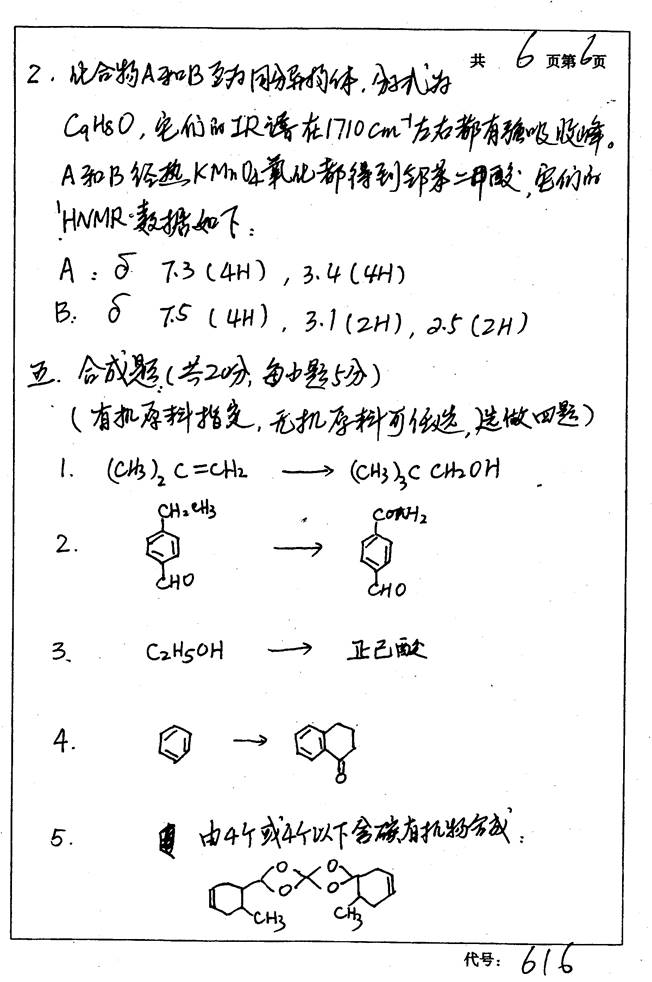 共 6 页第6页
2. 化合物A和B互为同分异构体,分子式为
C9H8O,它们的IR谱在1710cm⁻¹左右都有强吸收峰。
A和B经热KMnO4氧化都得到邻苯二甲酸,它们的
¹HNMR数据如下:
A : δ 7.3 (4H) , 3.4 (4H)
B: δ 7.5 (4H) , 3.1 (2H) , 2.5 (2H)
五. 合成题(共20分,每小题5分)
(有机原料指定,无机原料可任选,选做四题)
1. (CH3)2 C=CH2 → (CH3)3C CH2OH
2. CH2CH3 CHO → CONH2 CHO
3、 C2H5OH → 正己酸
4. → O
5. 由4个或4个以下含碳有机物合成:
O O O O CH3 CH3
代号: 616